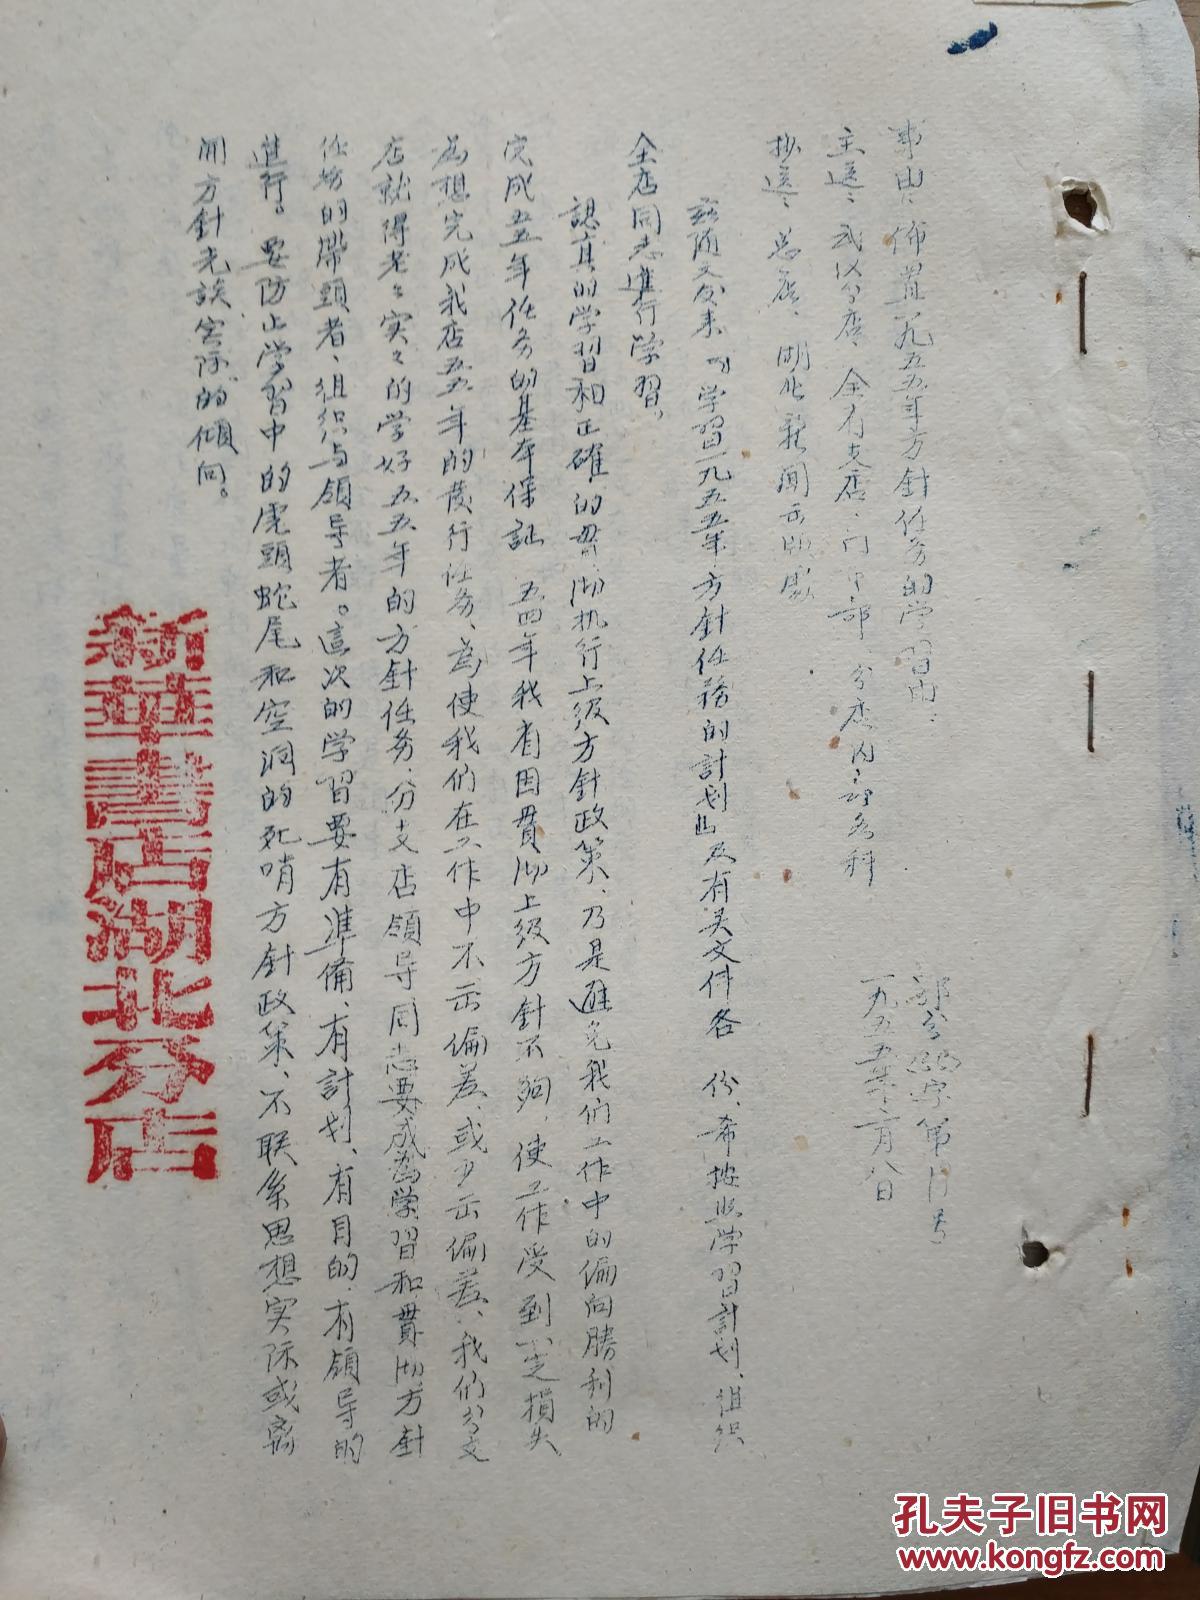 事由：佈置一九五五年方針任务的学習由：
主送：武汉分店、全省支店、门市部、分店内部各科
抄送：总店、湖北新闻出版處
字第 号
一九五五年二月八日
兹随文发来「学習一九五五年方針任務的計划」及有关文件各 份、希按照学習計划、組织
全店同志進行学習、
認真的学習和正確的貫彻执行上级方針政策、乃是避免我们工作中的偏向勝利的
完成五五年任务的基本保証 五四年我省因貫彻上级方針不夠、使工作受到一定損失
為想完成我店五五年的發行任务、為使我们在工作中不出偏差、或少出偏差、我们分支
店就得老々实々的学好五五年的方針任务、分支店領导同志要成為学習和貫彻方針
任务的帶頭者、組织与領导者。這次的学習要有準備、有計划、有目的、有領导的
進行。要防止学習中的虎頭蛇尾和空洞的死啃方針政策、不联系思想实际或离
開方針光談实际的傾向。
新華書店湖北分店
孔夫子旧书网
www.kongfz.com